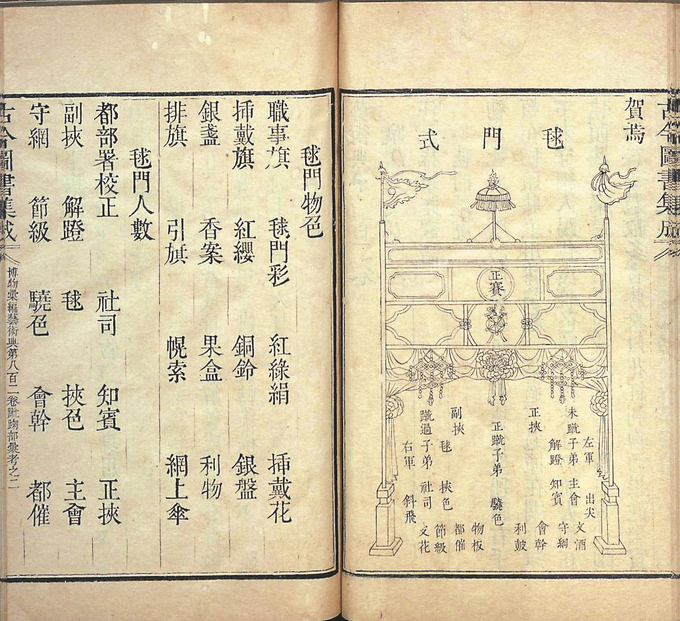 古今圖書集成
賀焉
毬門式
正賽
左軍 出尖
文酒
未蹴子弟 主會
解蹬 知賓 守網
正挾 會幹
利鼓
正蹴子弟 驍色
物板
副挾 都催
毬 挾色 節級
蹴過子弟 社司 文花
右軍 斜飛
毬門物色
職事旗 毬門彩 紅綠絹 挿戴花
挿戴旗 紅纓 銅鈴 銀盤
銀盞 香案 果盒 利物
排旗 引旗 幌索 網上傘
毬門人數
都部署校正 社司 知賓 正挾
副挾 解蹬 毬 挾色 主會
守網 節級 驍色 會幹 都催
古今圖書集成
博物彙編藝術典第八百二卷蹴踘部彙考之二